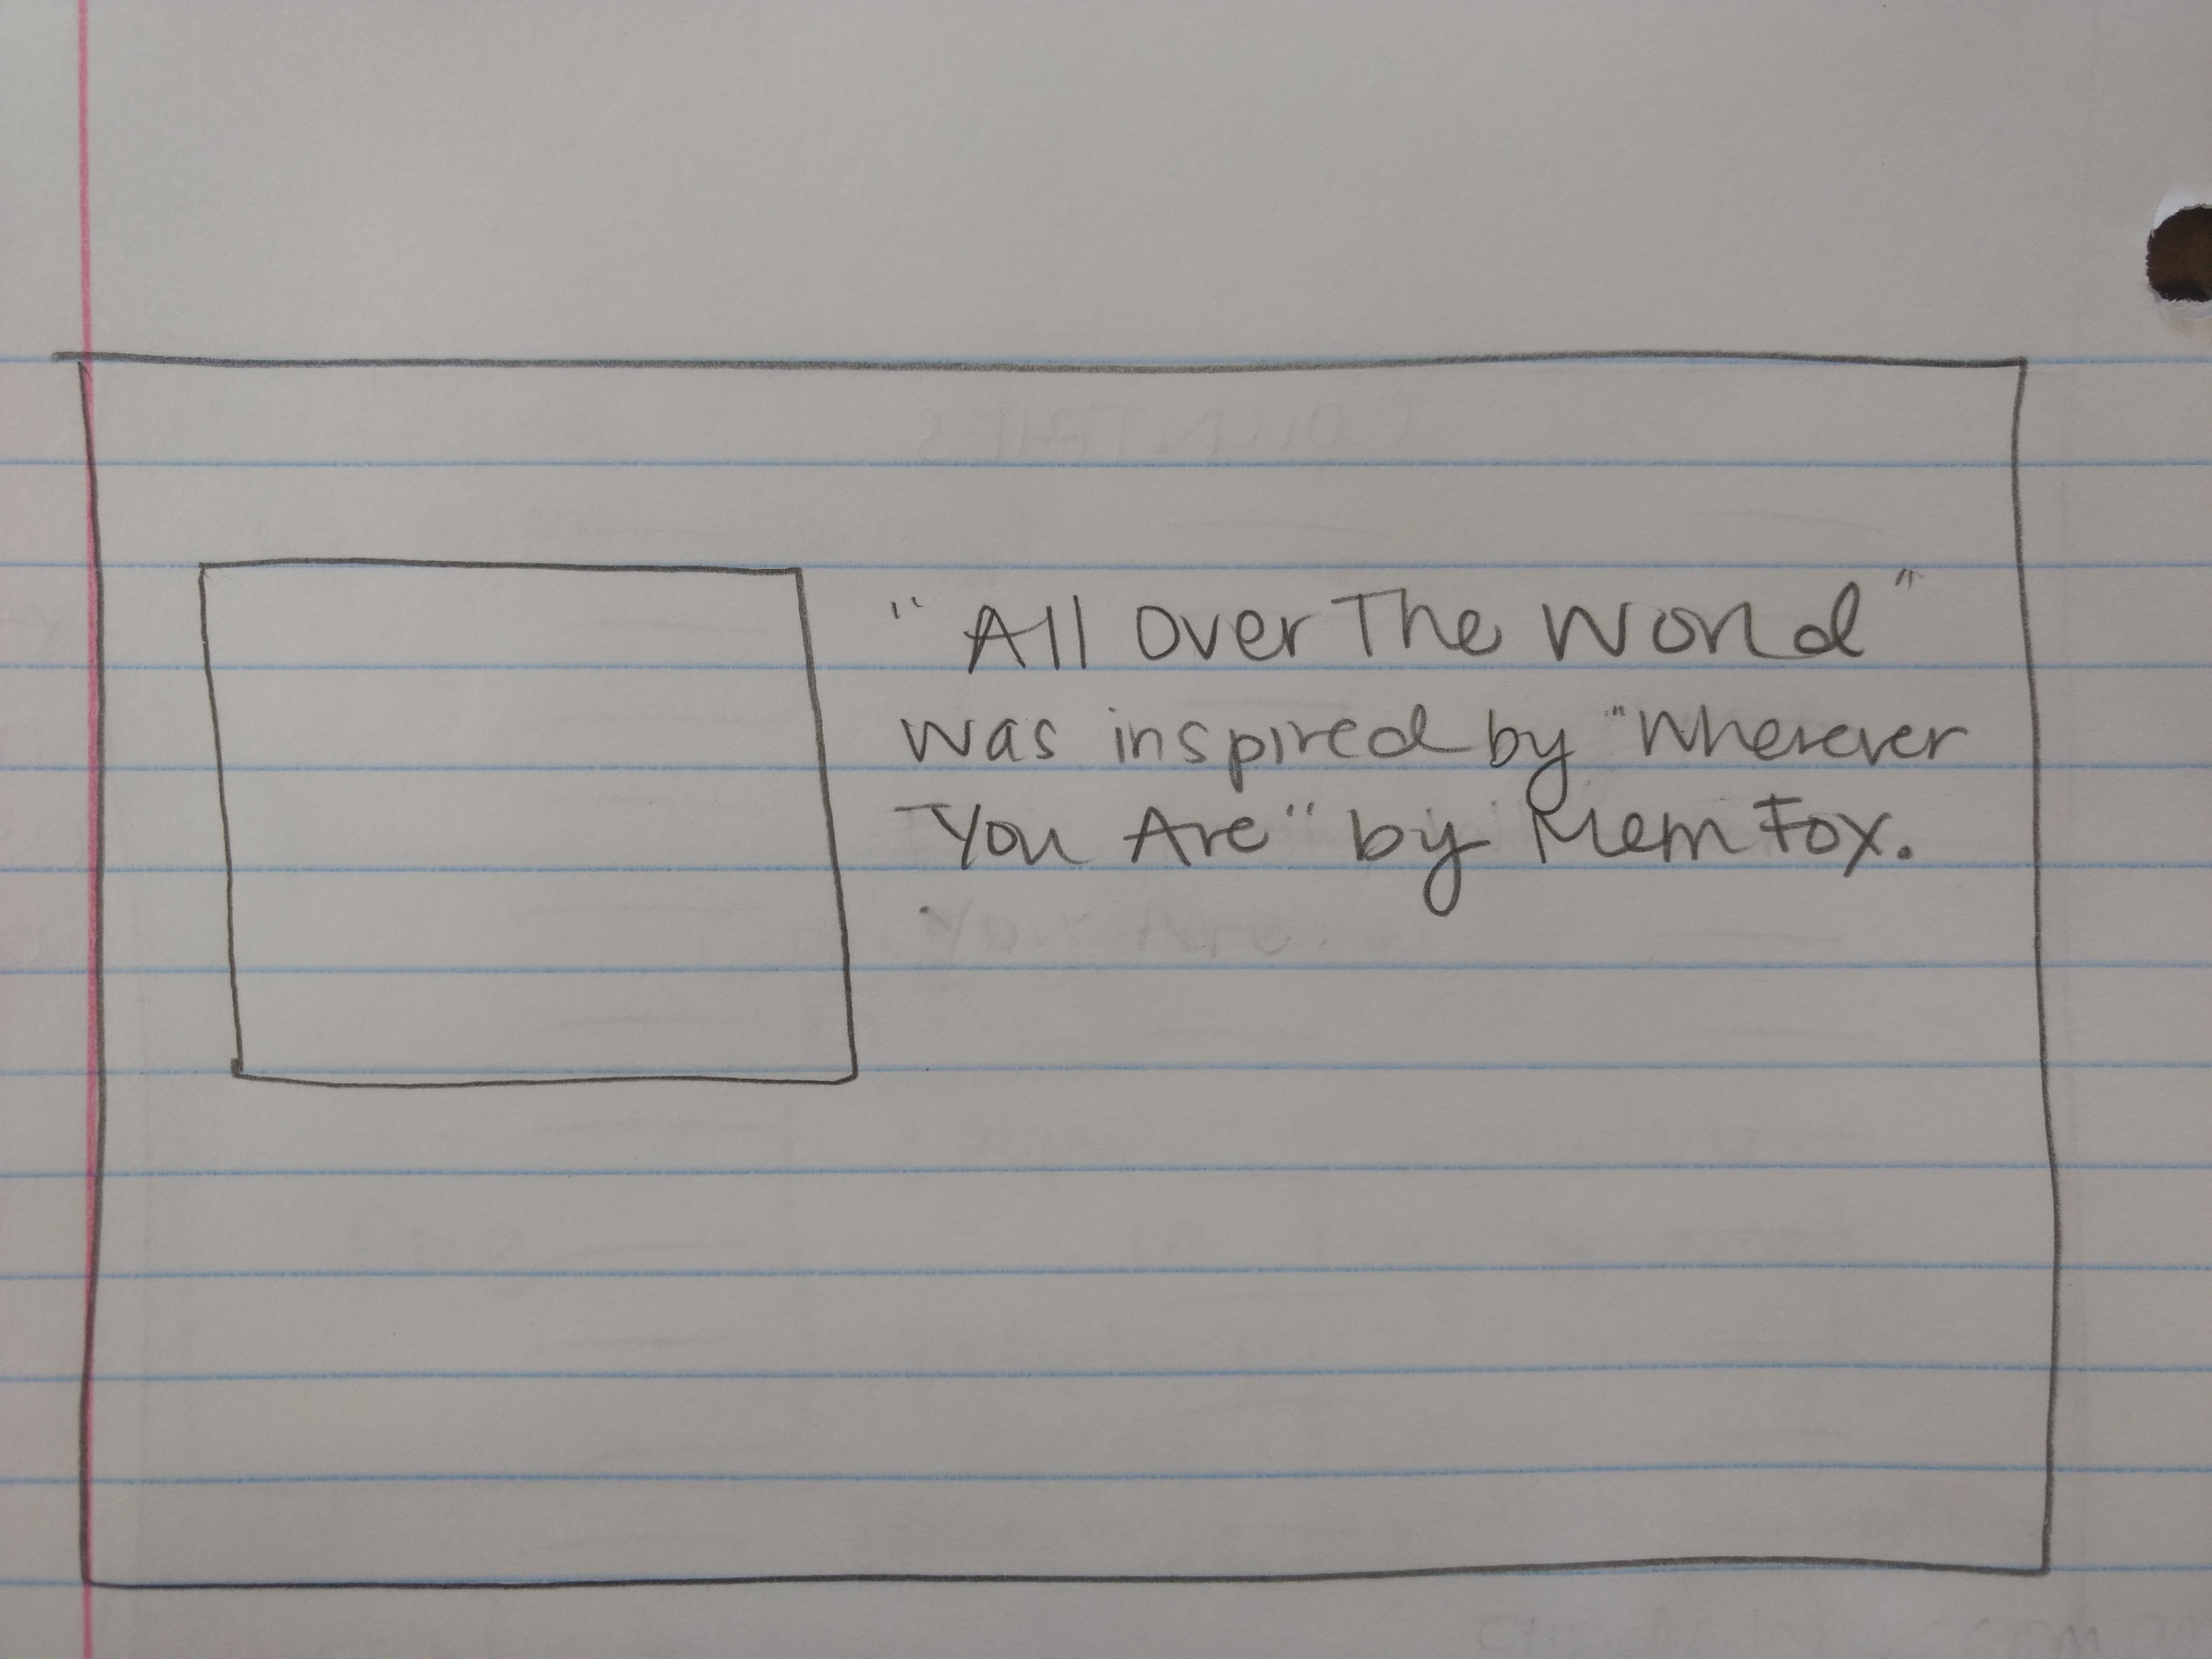 "All Over The World"
was inspired by "Wherever
You Are" by Mem Fox.